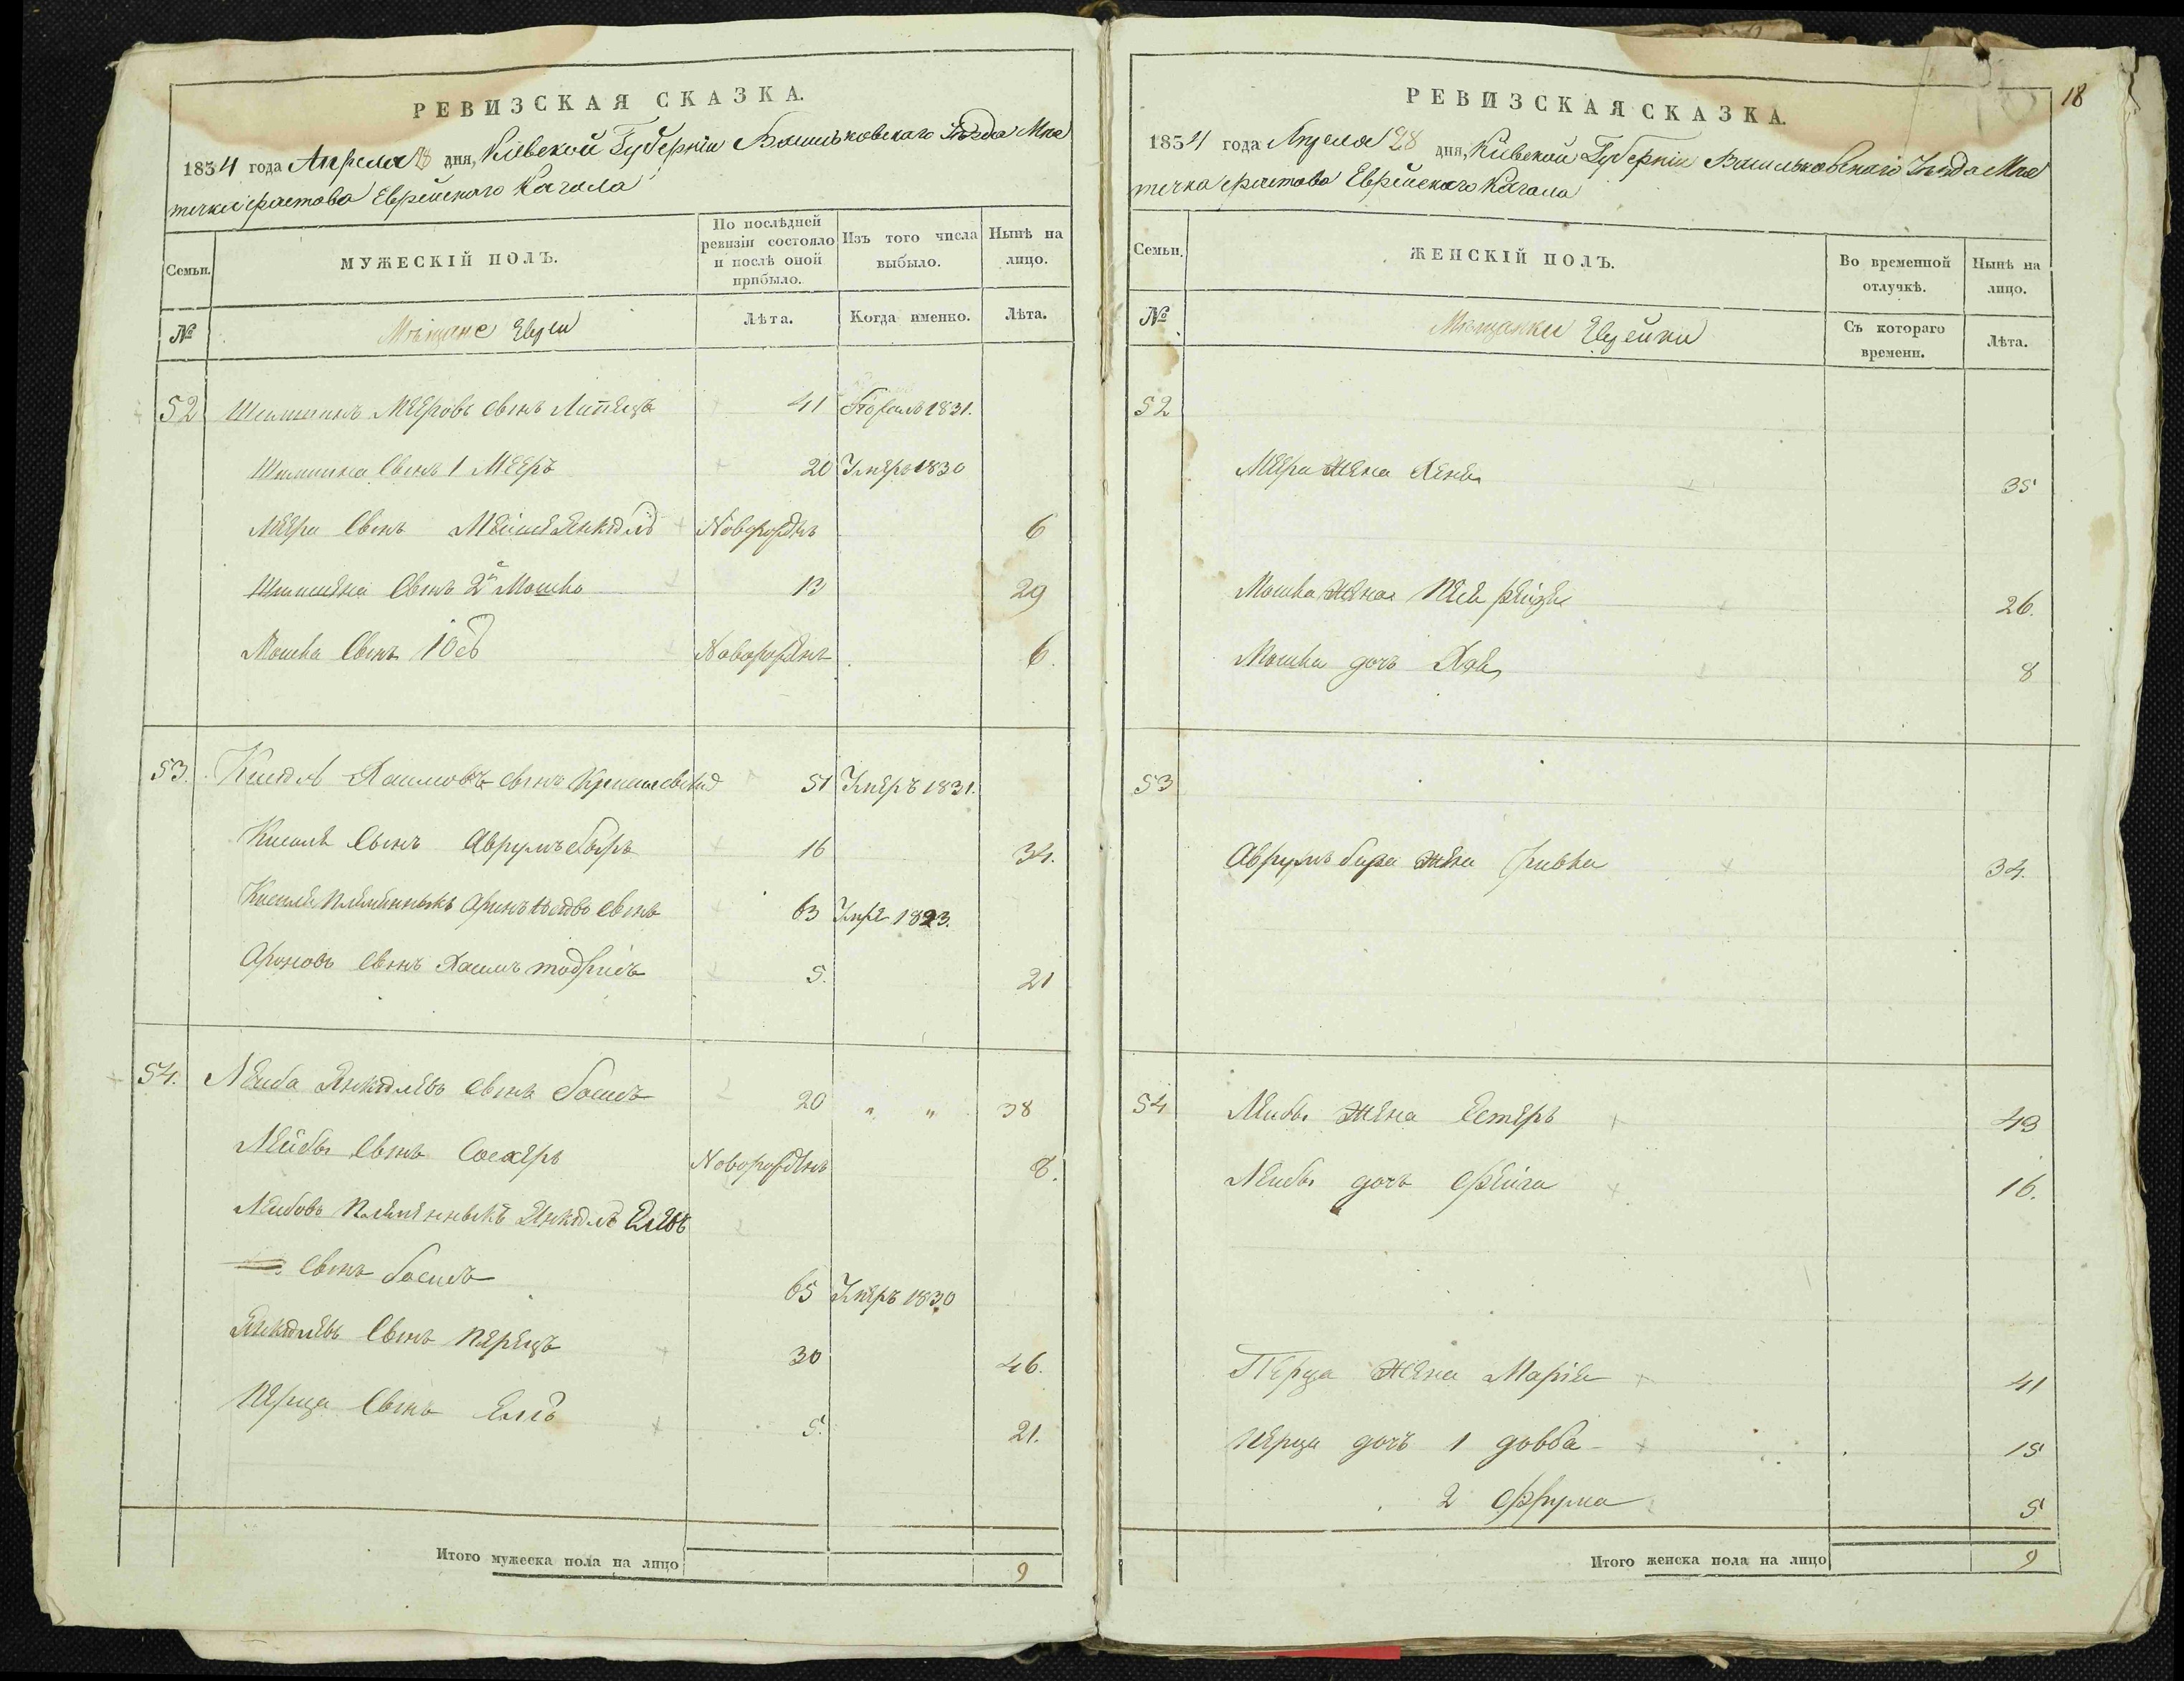 РЕВИЗСКАЯ СКАЗКА.
1834 года Апреля 28 дня, Кіевской Губерніи Васильковскаго Уѣзда Мѣс
течка Фастова Еврейскаго Кагала
Семьи.
МУЖЕСКІЙ ПОЛЪ.
По послѣдней ревизіи состояло и послѣ оной прибыло.
Изъ того числа выбыло.
Нынѣ на лицо.
№
Мѣщане Евреи
Лѣта.
Когда именно.
Лѣта.
52 Мееровъ сынъ Липецъ 41 1831.
сынъ 1 Мееръ 20 Умеръ 1830
Меера сынъ Новорожденъ 6
сынъ 2й Мошко 13 29
Мошка сынъ Іосъ Новорожденъ 6.
53. Хаимовъ сынъ 51 Умеръ 1831.
Киселя сынъ Аврумъ Беръ 16 34.
Киселя племянныкъ сынъ 63 1823.
Ароновъ сынъ Хаимъ 5. 21
54. Лейба Янкелевъ сынъ 20 " " 38
Лейбы сынъ Сосхеръ Новорожденъ 8.
Лейбовъ племенныкъ Янкель
сынъ 65 Умеръ 1830
Янкелевъ сынъ Перецъ 30 46.
Перца сынъ Ель 5. 21.
Итого мужеска пола на лицо 9
18
РЕВИЗСКАЯ СКАЗКА.
1834 года Апреля 28 дня, Кіевской Губерніи Васильковскаго Уѣзда Мѣс
течка Фастова Еврейскаго Кагала
Семьи.
ЖЕНСКІЙ ПОЛЪ.
Во временной отлучкѣ.
Нынѣ на лицо.
№
Мѣщанки Еврейки
Съ котораго времени.
Лѣта.
52
Меера жена Хена 35
Мошка жена Рейзя 26.
Мошка дочь Хая 8
53
Аврумъ Бера жена Ривка 34.
54 Лейбы жена Естеръ 43
Лейбы дочь Фейга 16.
Перца жена Марія 41
Перца дочь 1 Довба 15
2 Фрума 5
Итого женска пола на лицо 9